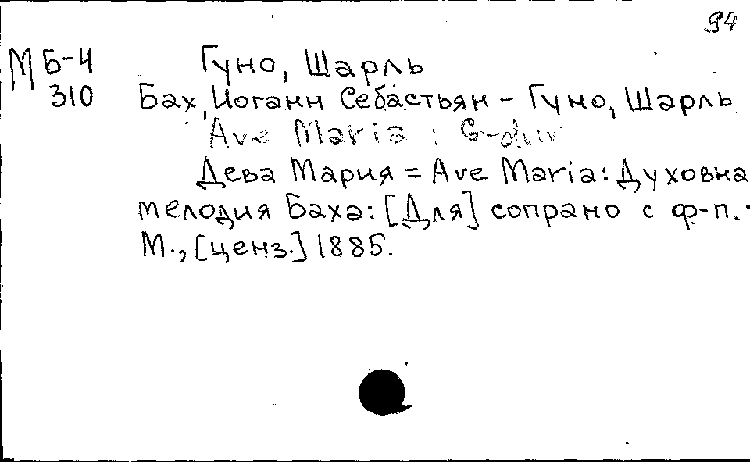 94
М Б-4 Гуно, Шарль
310 Бах, Иоганн Себастьян - Гуно, Шарль
Ave Maria : G-dur
Дева Мария = Ave Maria: Духовна
мелодия Баха: [Для] сопрано с ф-п. -
М., [ценз.] 1885.